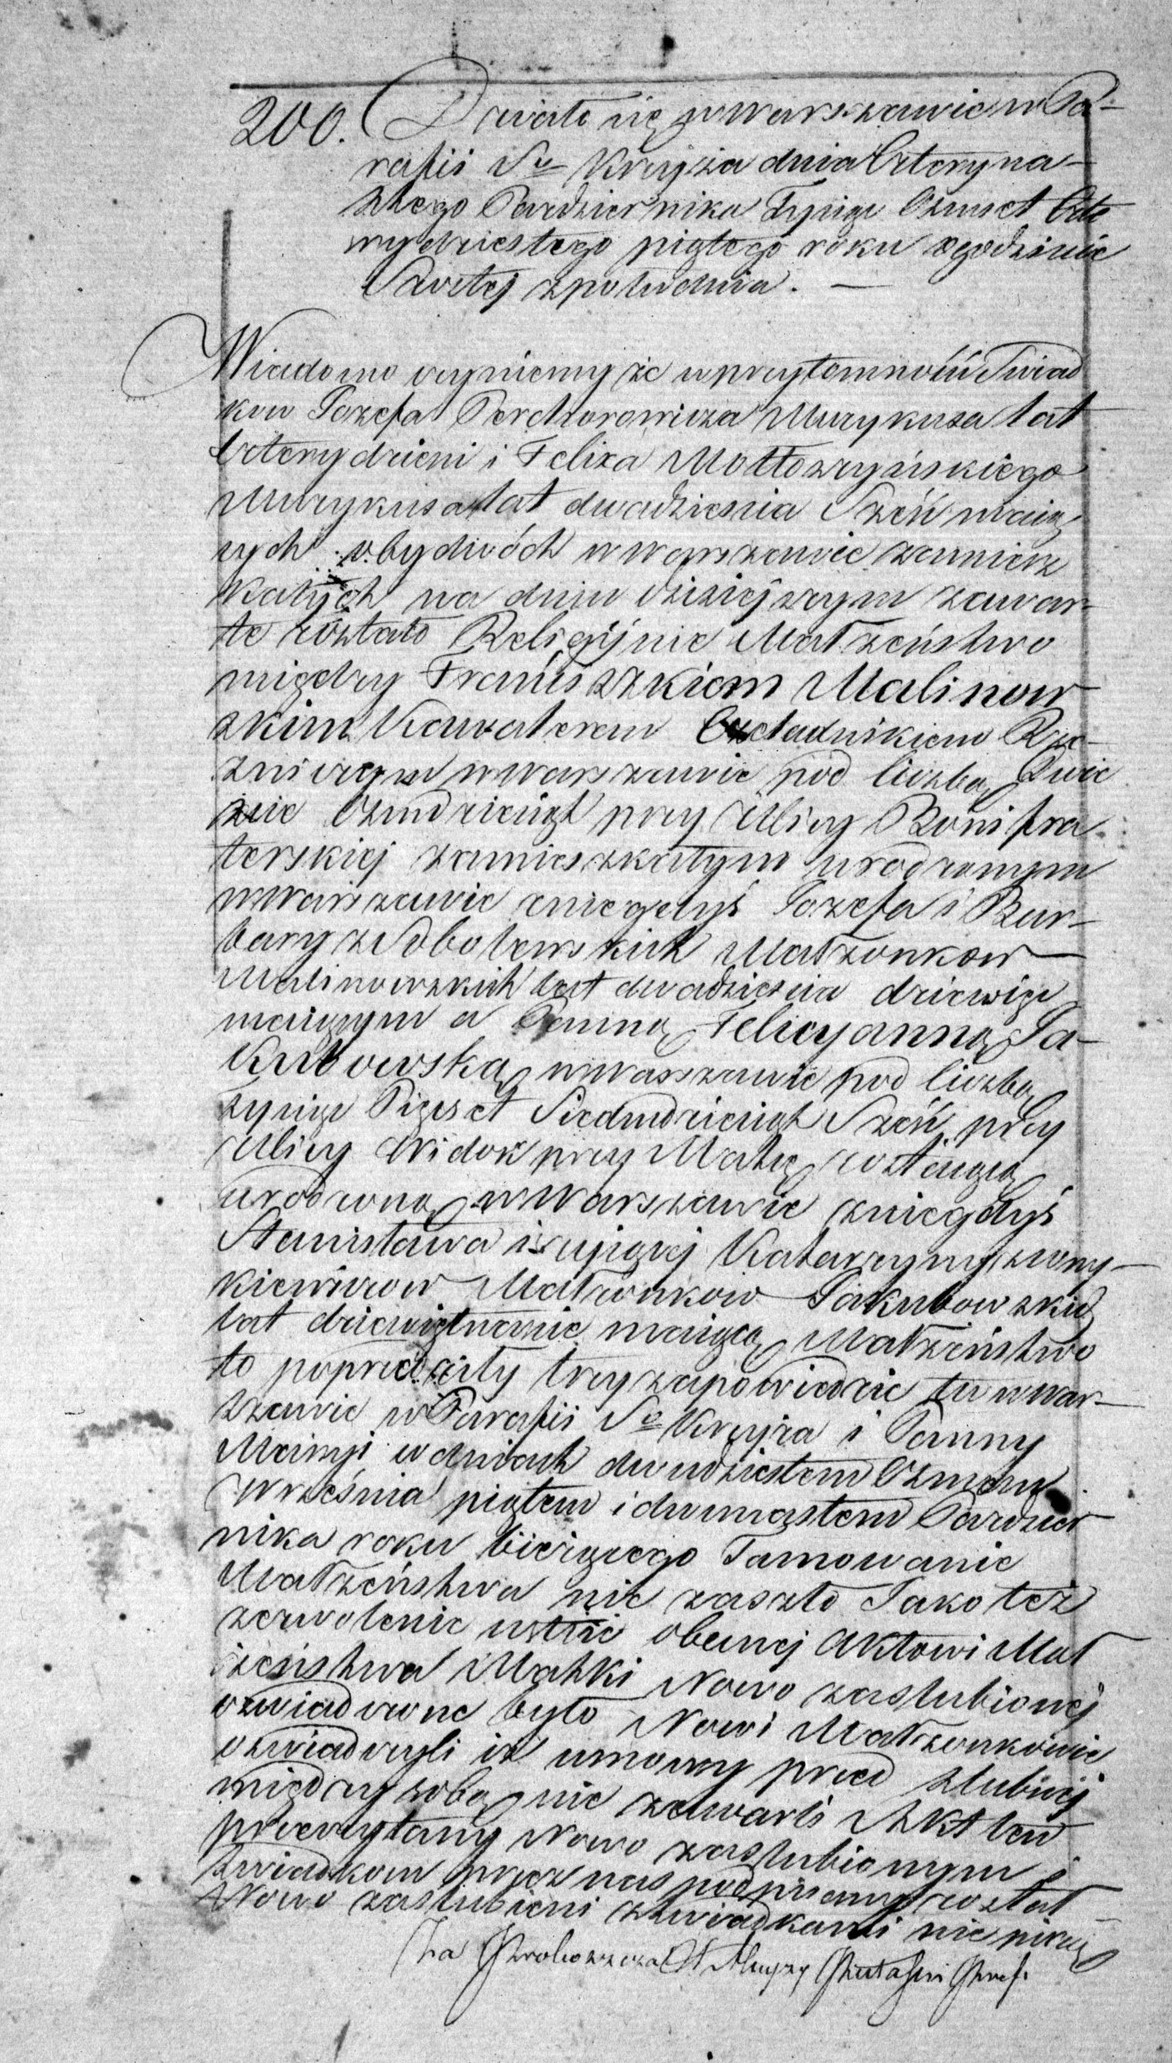 200. Działo się w Warszawie w Pa-
rafii Sgo Krzyża dnia Czterna-
stego Października Tysiąc Ośmset Czte
rydziestego piątego roku o godzinie
Szóstej z południa. —
Wiadomo czyniemy że w przytomności Świad
ków Józefa Murykusa lat
Czterydzieści i Felixa Mottoszyńskiego
Murykusa lat dwadzieścia Sześć maią
cych obydwóch w Warszawie zamiesz
kałych na dniu dzisiejszym zawar
te zostało Religijnie Małżeństwo
między Franciszkiem Malinow
skim Kawalerem Czeladnikiem Rze
źniczym w Warszawie pod liczbą Dwie
ście Ośmdziesiąt przy Ulicy Bonifra
terskiej zamieszkałym urodzonym
w Warszawie z niegdyś Józefa i Bar-
bary z Małżonków
Malinowskich lat dwadzieścia dziewięć
maiącym a Panną Felicyanną Ja-
kubowską w Warszawie pod liczbą
tysiąc Pięćset Siedmdziesiąt Sześć przy
Ulicy Widok przy Matce zostaiącą
urodzoną w Warszawie z niegdyś
Stanisława i żyiącej Katarzyny z
Małżonków Jakubowskich
lat dziewiętnaście maiącą Małżeństwo
to poprzedziły trzy zapowiedzie tu w War-
szawie w Parafii Sgo Krzyża i Panny
Maryi w dniach dwudziestem Ośmem
Września piątem i dwunastem Paździer
nika roku bieżącego Tamowanie
Małżeństwa nie zaszło Jako też
zezwolenie ustne obecnej Aktowi Mał
żeństwa Matki Nowo zaślubionej
oświadczone było Nowi Małżonkowie
oświadczyli iż umowy przed ślubnej
między sobą nie zawarli Akt ten
przeczytany Nowo zaślubionym i
Świadkom przez nas podpisany został
Nowo zaślubieni z świadkami nie piszą
Za Proboszcza